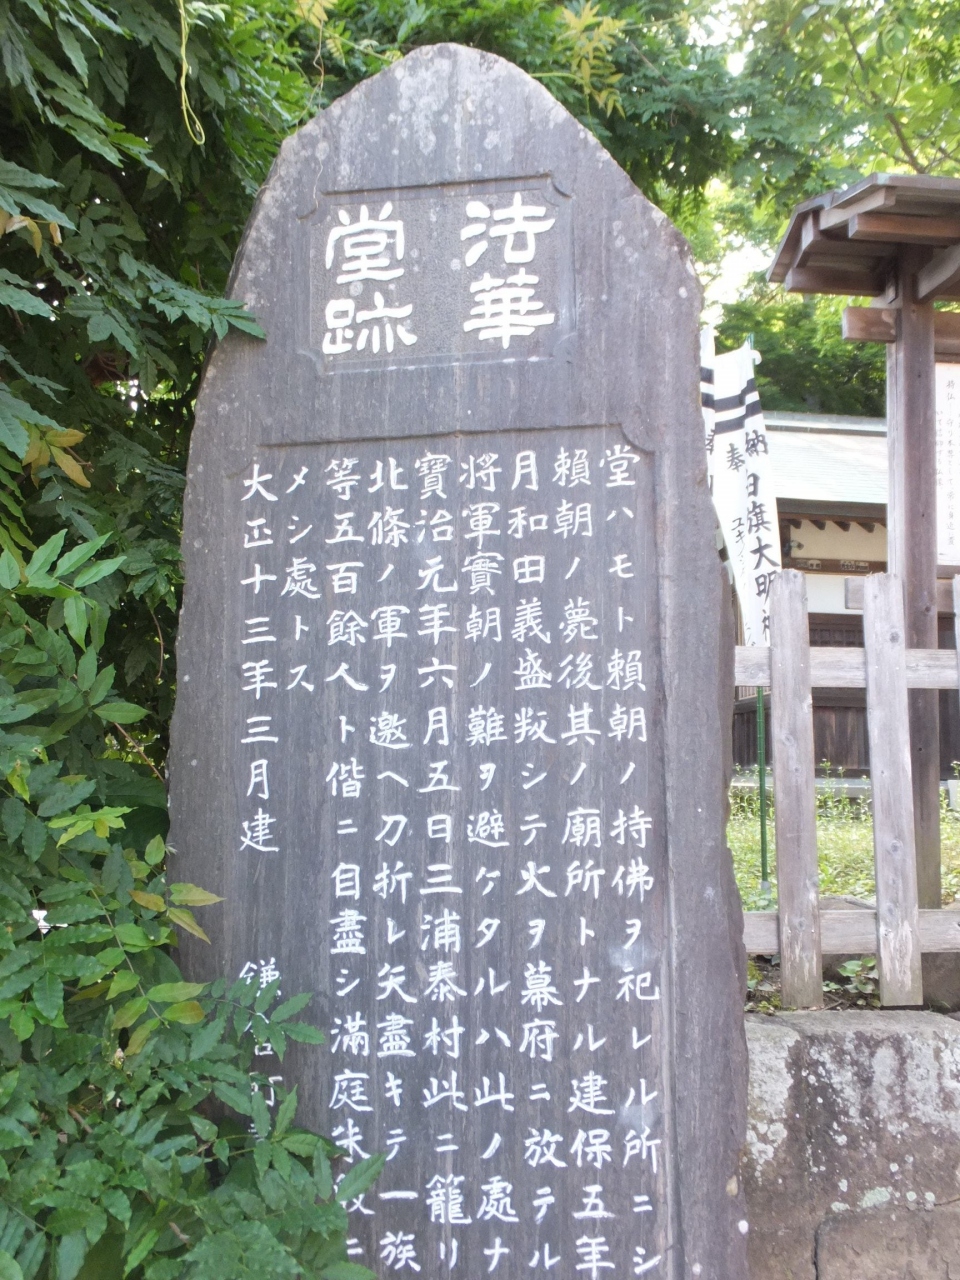 法華
堂跡
堂ハモト賴朝ノ持佛ヲ祀レル所ニシ
賴朝ノ薨後其ノ廟所トナル建保五年
月和田義盛叛シテ火ヲ幕府ニ放テル
將軍實朝ノ難ヲ避ケタルハ此ノ處ナ
寶治元年六月五日三浦泰村此ニ籠リ
北條ノ軍ヲ邀ヘ刀折レ矢盡キテ一族
等五百餘人ト偕ニ自盡シ滿庭朱殷ニ
メシ處トス
大正十三年三月建
鎌
町
奉納
白旗大明神